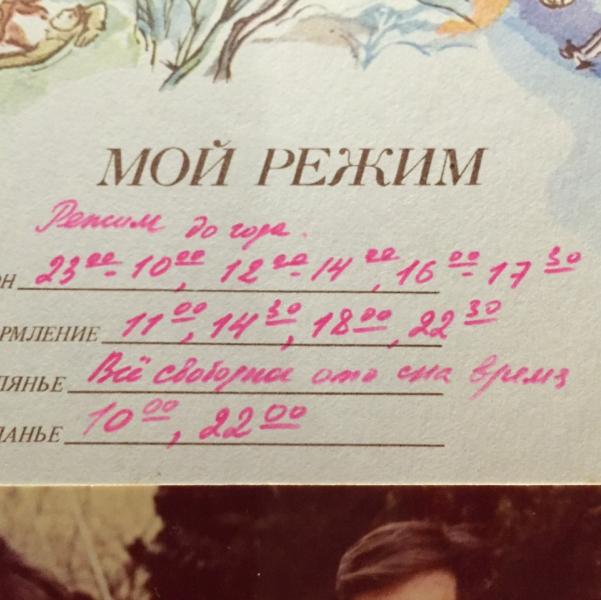 МОЙ РЕЖИМ
Режим до года.
ОН 23⁰⁰-10⁰⁰, 12⁰⁰-14⁰⁰, 16⁰⁰-17³⁰
РМЛЕНИЕ 11⁰⁰, 14³⁰, 18⁰⁰, 22³⁰
ЛЯНЬЕ Всё свободное ото сна время
ПАНЬЕ 10⁰⁰, 22⁰⁰